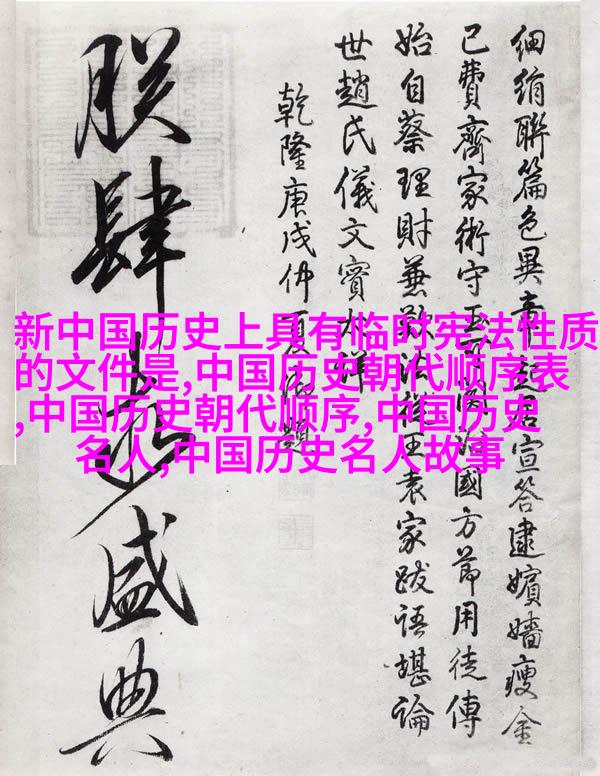 新中国历史上具有临时宪法性质
的文件是,中国历史朝代顺序表
,中国历史朝代顺序,中国历史
名人,中国历史名人故事
細絹聯篇色異起居宣答逮嬪嬙瘦金
已費齊家術守國方節用徒傳
始自蔡理財兼法從王袁家跋語堪論
世趙氏儀文實詳
乾隆庚戌仲夏御題
朕肆盛典